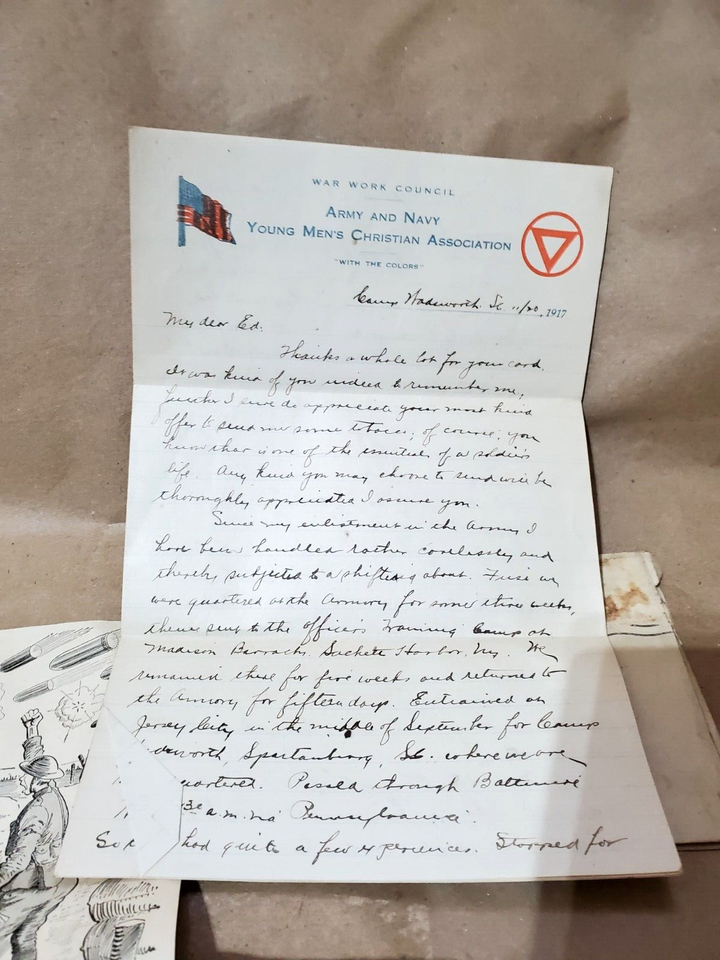 WAR WORK COUNCIL
ARMY AND NAVY
YOUNG MEN'S CHRISTIAN ASSOCIATION
"WITH THE COLORS"
Camp Wadsworth. S.C. 11/20, 1917
My dear Ed:
Thanks a whole lot for your card.
It was kind of you indeed to remember me,
further I sure do appreciate your most kind
offer to send me some tobacco; of course, you
know that is one of the essentials of a soldier's
life. Any kind you may choose to send will be
thoroughly appreciated I assure you.
Since my enlistment in the Army I
have been handled rather carelessly and
thereby subjected to a shifting about. First we
were quartered at the Armory for some three weeks,
thence sent to the Officers Training Camp at
Madison Barracks, Sackets Harbor, N.Y. We
remained there for five weeks and returned to
the Armory for fifteen days. Entrained at
Jersey City in the middle of September for Camp
Spartanburg, S.C. where we are
quartered. Passed through Baltimore
30 a.m. via Pennsylvania.
had quite a few experiences. Stopped for